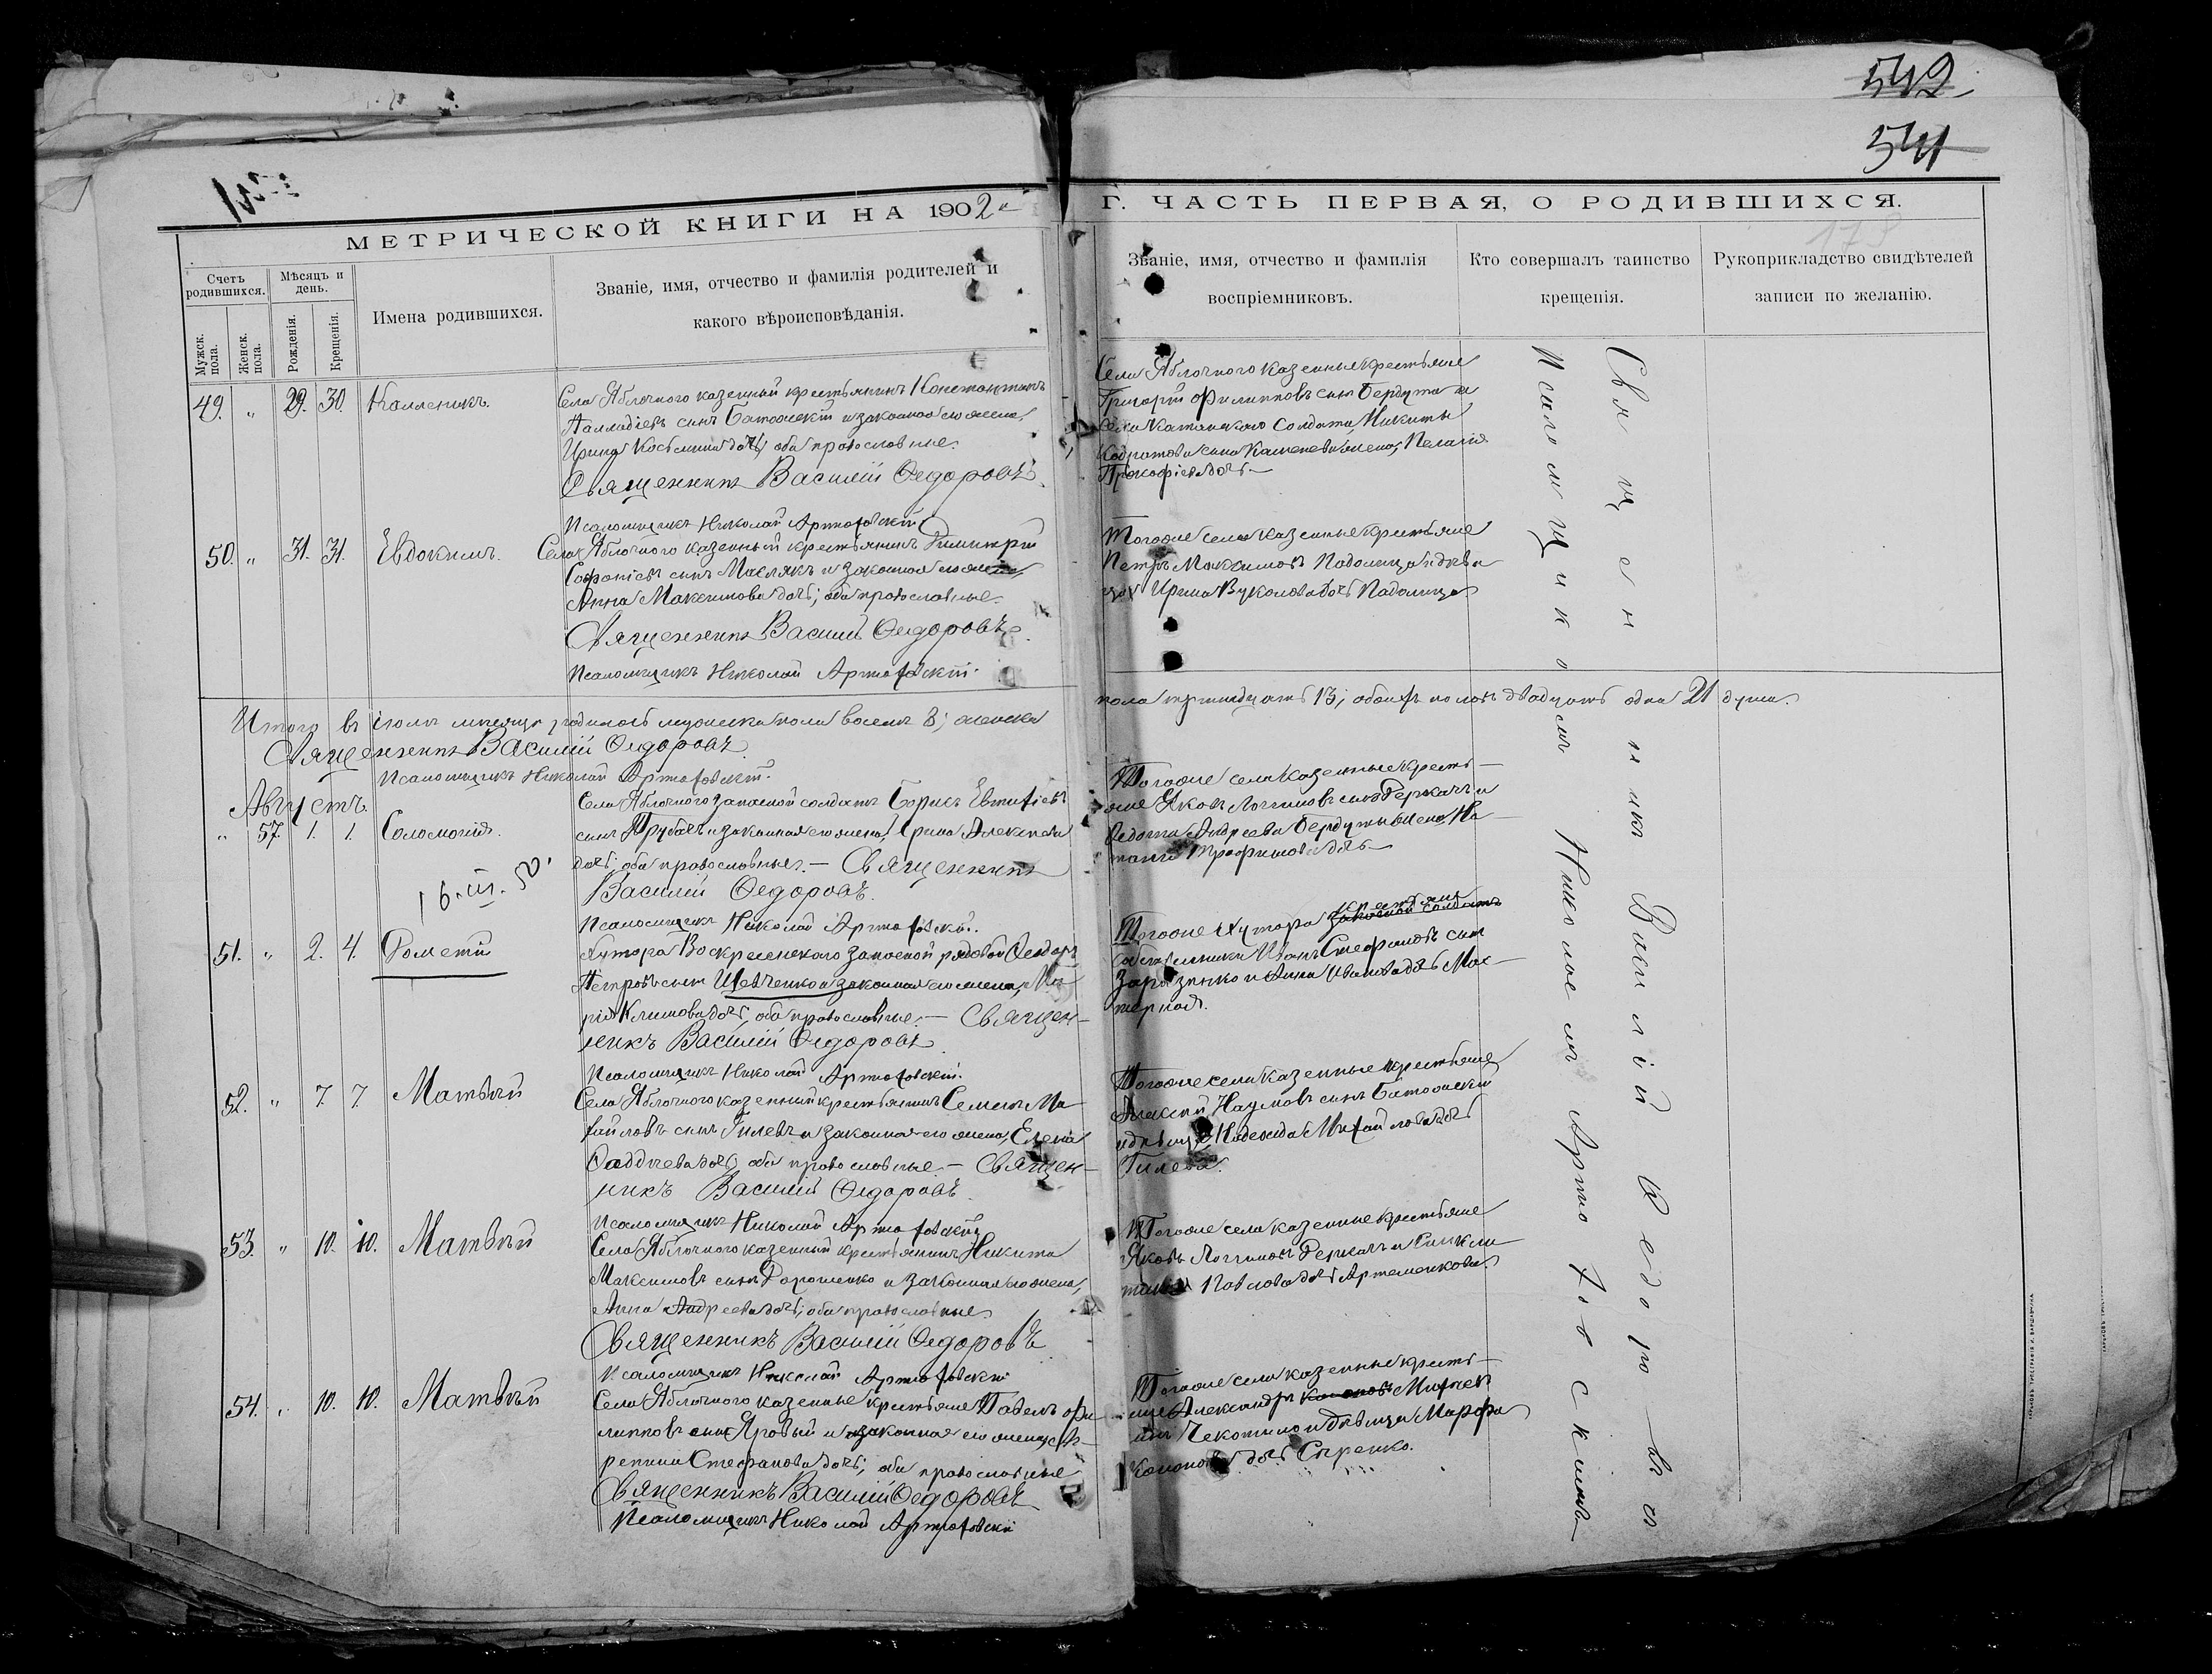 542.
541
МЕТРИЧЕСКОЙ КНИГИ НА 1902 г. ЧАСТЬ ПЕРВАЯ, О РОДИВШИХСЯ.
Счетъ родившихся.
Мужск. пола.
Женск. пола.
Мѣсяцъ и день.
Рожденія.
Крещенія.
Имена родившихся.
Званіе, имя, отчество и фамилія родителей и
какого вѣроисповѣданія.
Званіе, имя, отчество и фамилія
воспріемниковъ.
Кто совершалъ таинство
крещенія.
Рукоприкладство свидѣтелей
записи по желанію.
49. " 29. 30. Каллиникъ.
Села Яблочного казенный крестьянинъ Константинъ
Палладіевъ сынъ и законная его жена,
Ирина Косьмина дочь, оба православные.
Священникъ Василій Ѳедоровъ.
Псаломщикъ Николай Артюховскій
Села Яблочного казенные крестьяне
Григорій Филипповъ сынъ Бердута и
села солдата Никиты
сына жена, Пелагія
Прокофіева дочь
50. " 31. 31. Евдокимъ.
Села Яблочного казенный крестьянинъ Димитрій
Софоніевъ сынъ Маслякъ и законная его жена,
Анна Максимова дочь; оба православные.
Священникъ Василій Ѳедоровъ.
Псаломщикъ Николай Артюховскій.
Тогоже села казенные крестьяне
Петръ Максимовъ Падолица и дѣви
ца Ирина Вуколова дочь Падолица
Итого въ іюлѣ мѣсяцѣ родилось мужеска пола восемь 8; женска
пола тринадцать 13; обоихъ половъ двадцать одна 21 душа.
Священникъ Василій Ѳедоровъ
Псаломщикъ Николай Артюховскій.
Августъ.
" 57 1. 1. Соломонія.
Села Яблочного запасной солдатъ Борисъ Евтихіевъ
сынъ Трубачъ и законная его жена, Ирина Алексѣева
дочь, оба православные. — Священникъ
Василій Ѳедоровъ.
Псаломщикъ Николай Артюховскій.
Тогоже села казенные кресть-
яне Яковъ Логгиновъ сынъ Деркачъ и
Ѳедота Андреева Бердуты жена, На-
талія Трофимова дочь
16.III.50.
51. " 2. 4. Рометій
хутора Воскресенского запасной рядовой Ѳеодоръ
Петровъ сынъ Шевченко и законная его жена, Ма-
рія Климова дочь, оба православные. — Священ-
никъ Василій Ѳедоровъ
Псаломщикъ Николай Артюховскій.
Тогоже хутора крестьяне
собственники Иванъ Стефановъ сынъ
и Анна Иванова дочь
52. " 7. 7. Матвѣй
Села Яблочного казенный крестьянинъ Семенъ Ми-
хайловъ сынъ Гилевъ и законная его жена, Елена
Ѳаддеева дочь, оба православные. — Священ-
никъ Василій Ѳедоровъ
Псаломщикъ Николай Артюховскій
Тогоже села казенные крестьяне
Алексій Наумовъ сынъ
и дѣвица Надежда Михайлова дочь
Гилева.
53. " 10. 10. Матвѣй
Села Яблочного казенный крестьянинъ Никита
Максимовъ сынъ Дорошенко и законная его жена,
Анна Андреева дочь, оба православные
Священникъ Василій Ѳедоровъ
Псаломщикъ Николай Артюховскій
Тогоже села казенные крестьяне
Яковъ Логгиновъ Деркачъ и Синкли-
тикія Павлова дочь Артеменкова.
54. " 10. 10. Матвѣй
Села Яблочного казенные крестьяне Павелъ Фи-
липповъ сынъ Яровый и законная его жена,
Стефанова дочь, оба православные
Священникъ Василій Ѳедоровъ
Псаломщикъ Николай Артюховскій
Тогоже села казенные кресть-
яне Александръ Михеевъ
сынъ Чекотило и дѣвица Марфа
Кононова дочь Сѣренко.
Священникъ Василій Ѳедоровъ съ
Псаломщикомъ Николаемъ Артюховскимъ